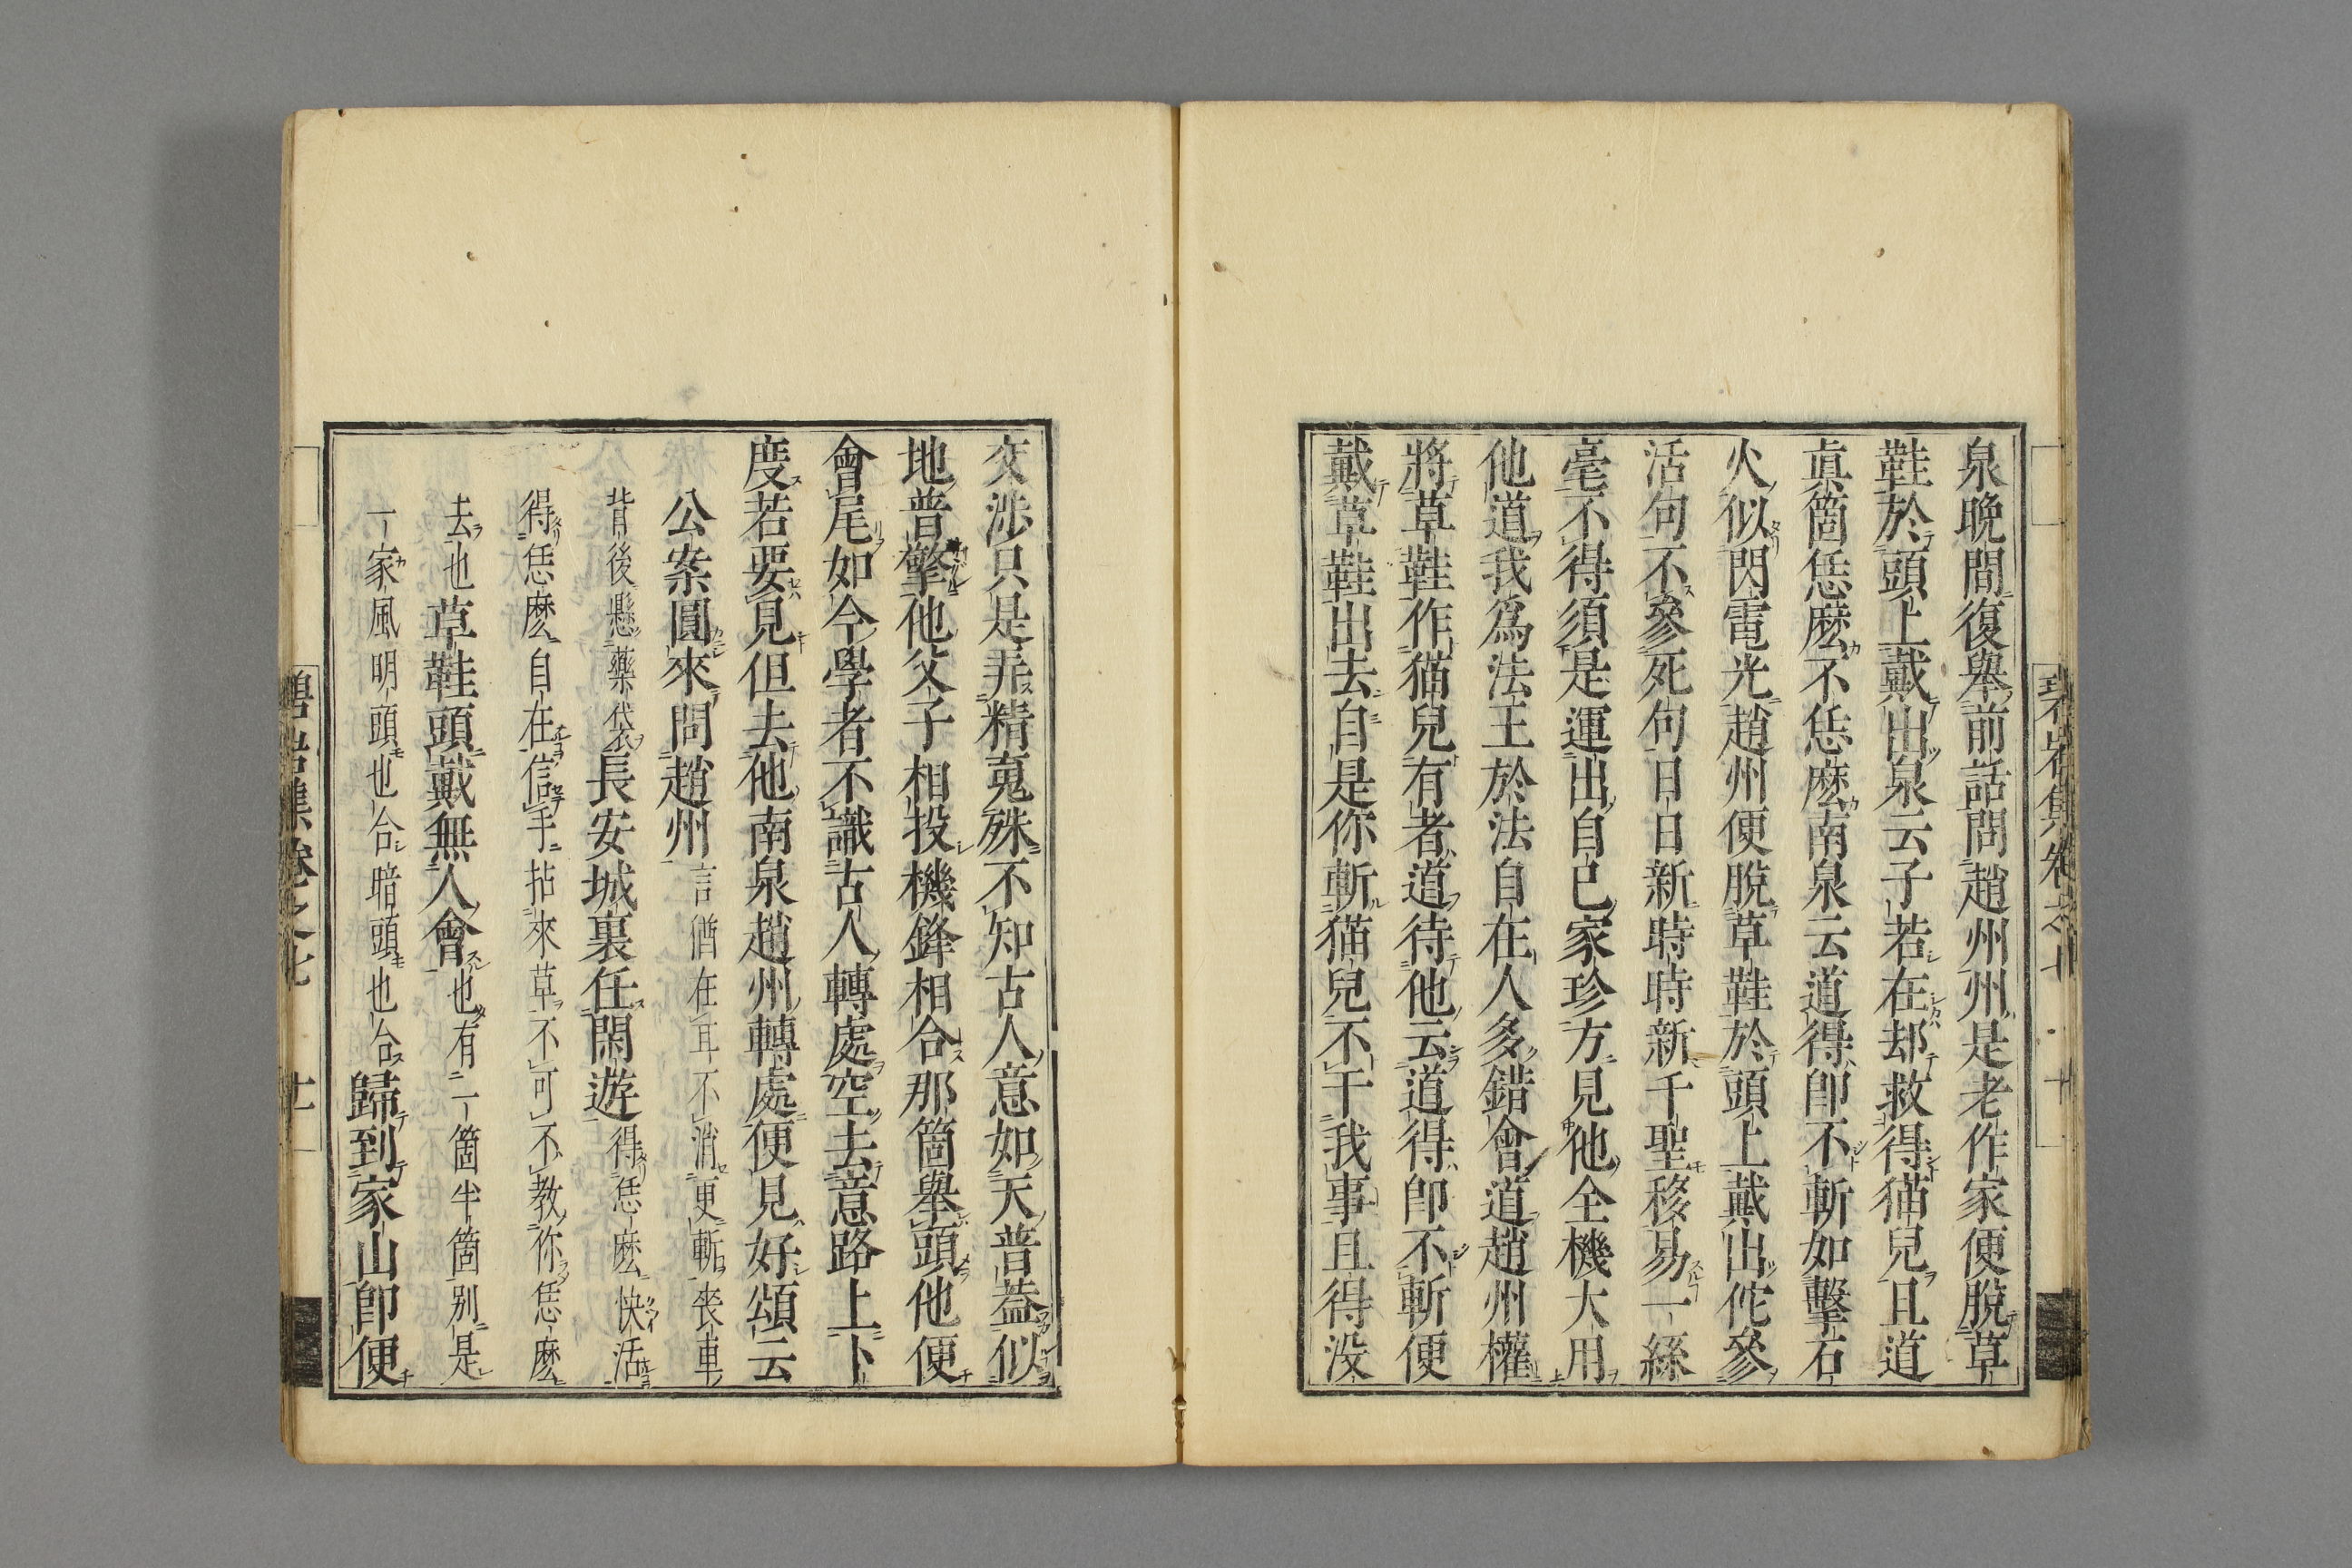 泉晩間復舉前話問趙州州是老作家便脫草
鞋於頭上戴出泉云子若在却救得猫兒且道
眞箇恁麽不恁麽南泉云道得卽不斬如擊石
火似閃電光趙州便脫草鞋於頭上戴出佗參
活句不參死句日日新時時新千聖移易一絲
毫不得須是運出自己家珍方見他全機大用
他道我爲法王於法自在人多錯會道趙州權
將草鞋作猫兒有者道待他云道得卽不斬便
戴草鞋出去自是你斬猫兒不干我事且得没
交涉只是弄精䰟殊不知古人意如天普葢似
地普擎他父子相投機鋒相合那箇舉頭他便
會尾如今學者不識古人轉處空去意路上卜
度若要見但去他南泉趙州轉處便見好頌云
公案圓來問趙州言猶在耳不消更斬喪車
背後懸藥袋長安城裏任閑遊得恁麽快活
得恁麽自在信手拈來草不可不教你恁麽
去也草鞋頭戴無人會也有一箇半箇别是
一家風明頭也合暗頭也合歸到家山卽便
碧岩集卷之七 十一